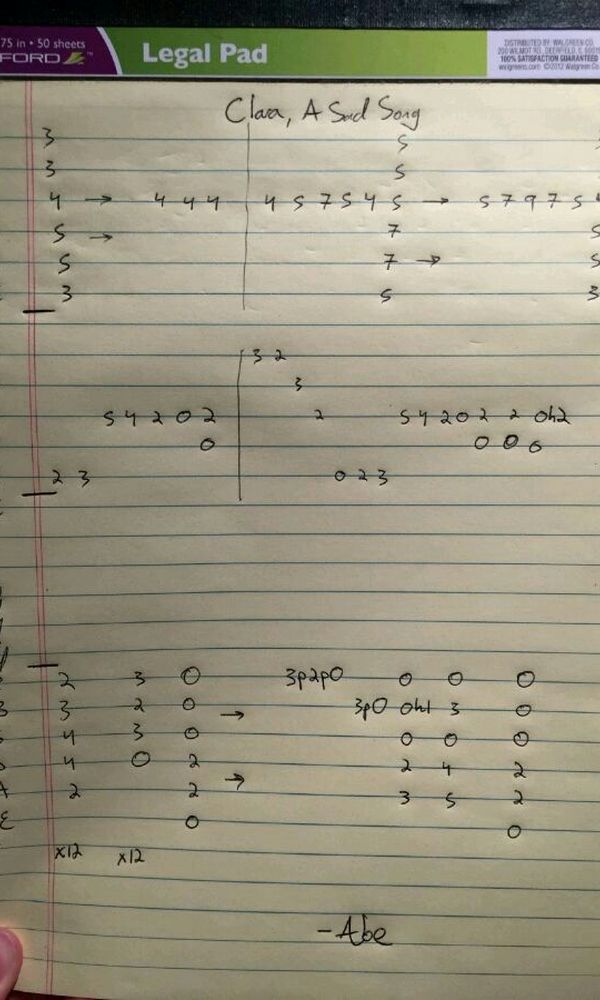 75 in • 50 sheets
FORD
Legal Pad
DISTRIBUTED BY: WALGREEN CO.
200 WILMOT RD., DEERFIELD, IL 60015
100% SATISFACTION GUARANTEED
walgreens.com ©2012 Walgreen
Clara, A Sad Song
3 5
3 5
4 → 4 4 4 | 4 5 7 5 4 5 → 5 7 9 7 5
5 → 7 5
5 7 → 5
3 5 3
3 2
3
5 4 2 0 2 2 5 4 2 0 2 2 0h2
0 0 0 0
2 3 0 2 3
2 3 0 3p2p0 0 0 0
3 2 0 → 3p0 0h1 3 0
4 3 0 0 0 0
4 0 2 2 4 2
A 2 2 → 3 5 2
E 0 0
x12 x12
-Abe